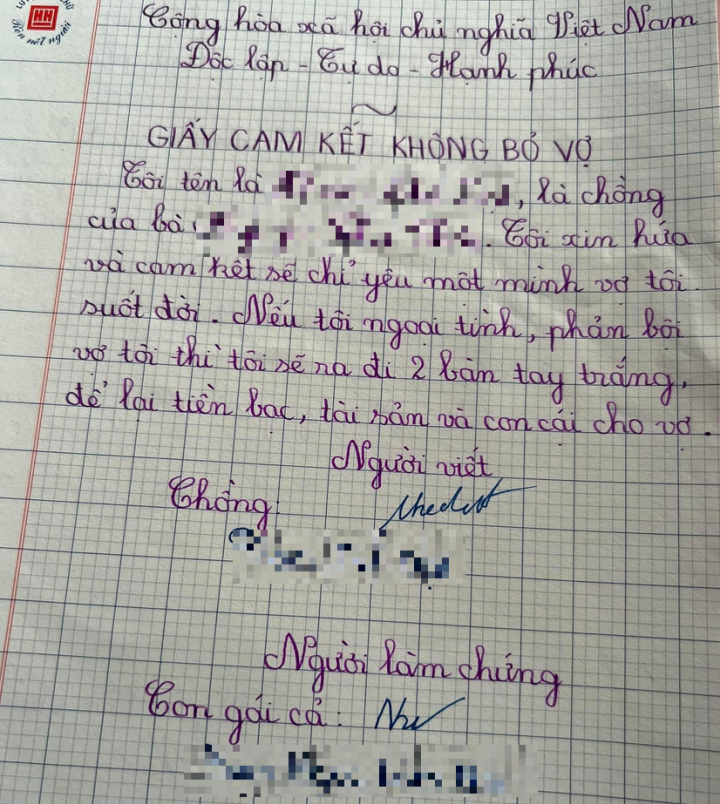 Cộng hòa xã hội chủ nghĩa Việt Nam
Độc lập - Tự do - Hạnh phúc
GIẤY CAM KẾT KHÔNG BỎ VỢ
Tôi tên là , là chồng
của bà . Tôi xin hứa
và cam kết sẽ chỉ yêu một mình vợ tôi
suốt đời. Nếu tôi ngoại tình, phản bội
vợ tôi thì tôi sẽ ra đi 2 bàn tay trắng,
để lại tiền bạc, tài sản và con cái cho vợ.
Người viết
Chồng
Người làm chứng
Con gái cả: